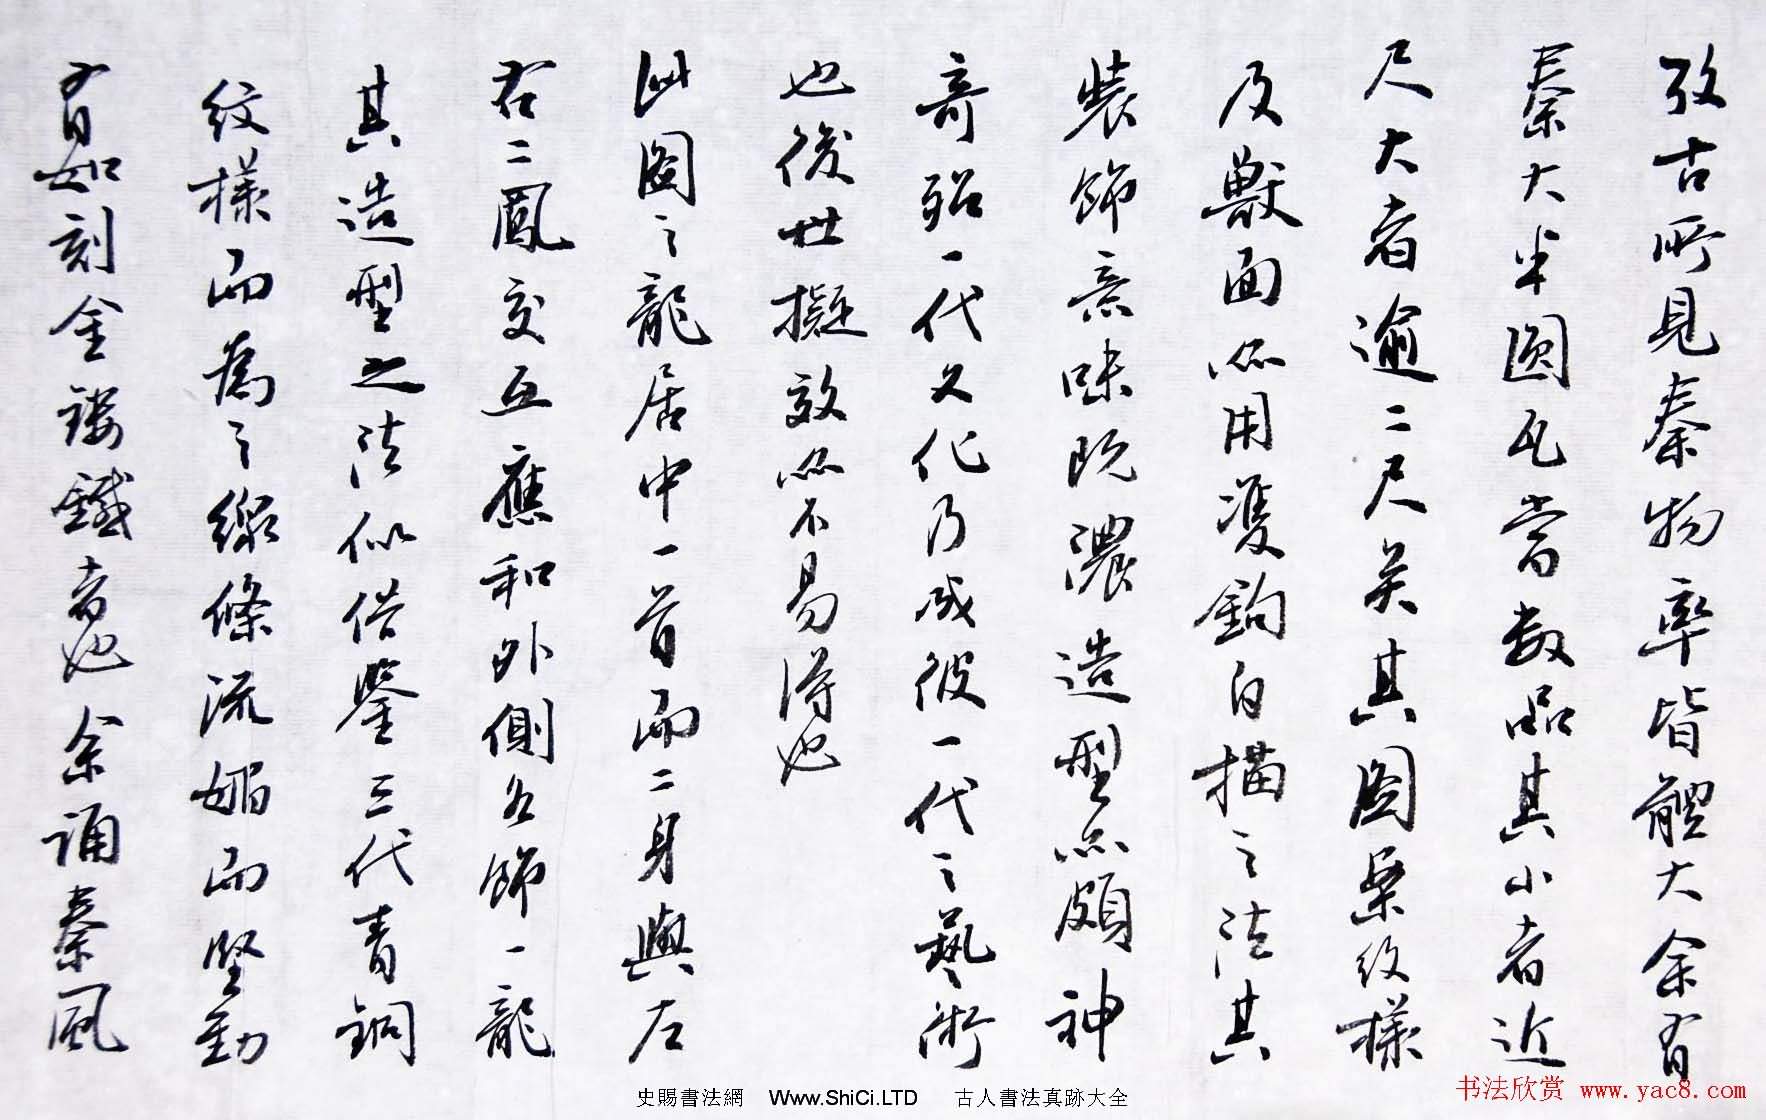 攷古所見秦物率皆體大余有
秦大半圓瓦當數品其小者近
尺大者逾二尺矣其圖案紋樣
及獸面亦用雙鉤白描之法其
裝飾意味既濃造型亦頗神
奇殆一代文化乃成彼一代之藝術
也後世擬效亦不易得也
此圖之龍居中一首而二身與左
右二鳳交互應和外側各飾一龍
其造型之法似借鑒三代青銅
紋樣而為之線條流媚而堅勁
有如刻金鏤鐵者也余誦秦風
史賜書法網 Www.ShiCi.LTD 古人書法真跡大全
书法欣赏 www.yac8.com